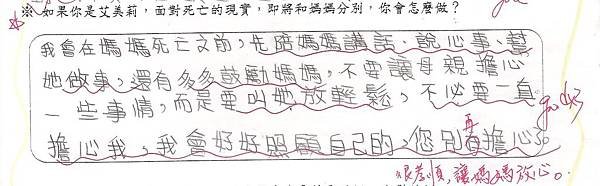 ※ 如果你是艾美莉,面對死亡的現實,即將和媽媽分別,你會怎麼做?
我會在媽媽死亡之前,先陪媽媽講話、說心事、幫
她做事,還有多多鼓勵媽媽,不要讓母親擔心
一些事情,而是要叫她放輕鬆,不必要一直
擔心我,我會好好照顧自己的,您別再擔心。
很孝順,讓媽媽放心。